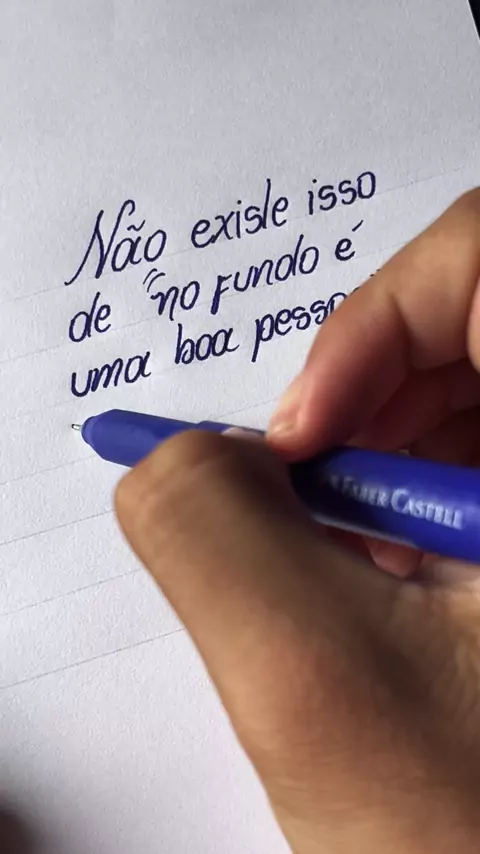 Não existe isso
de "no fundo é
uma boa pessoa"
FABER CASTELL